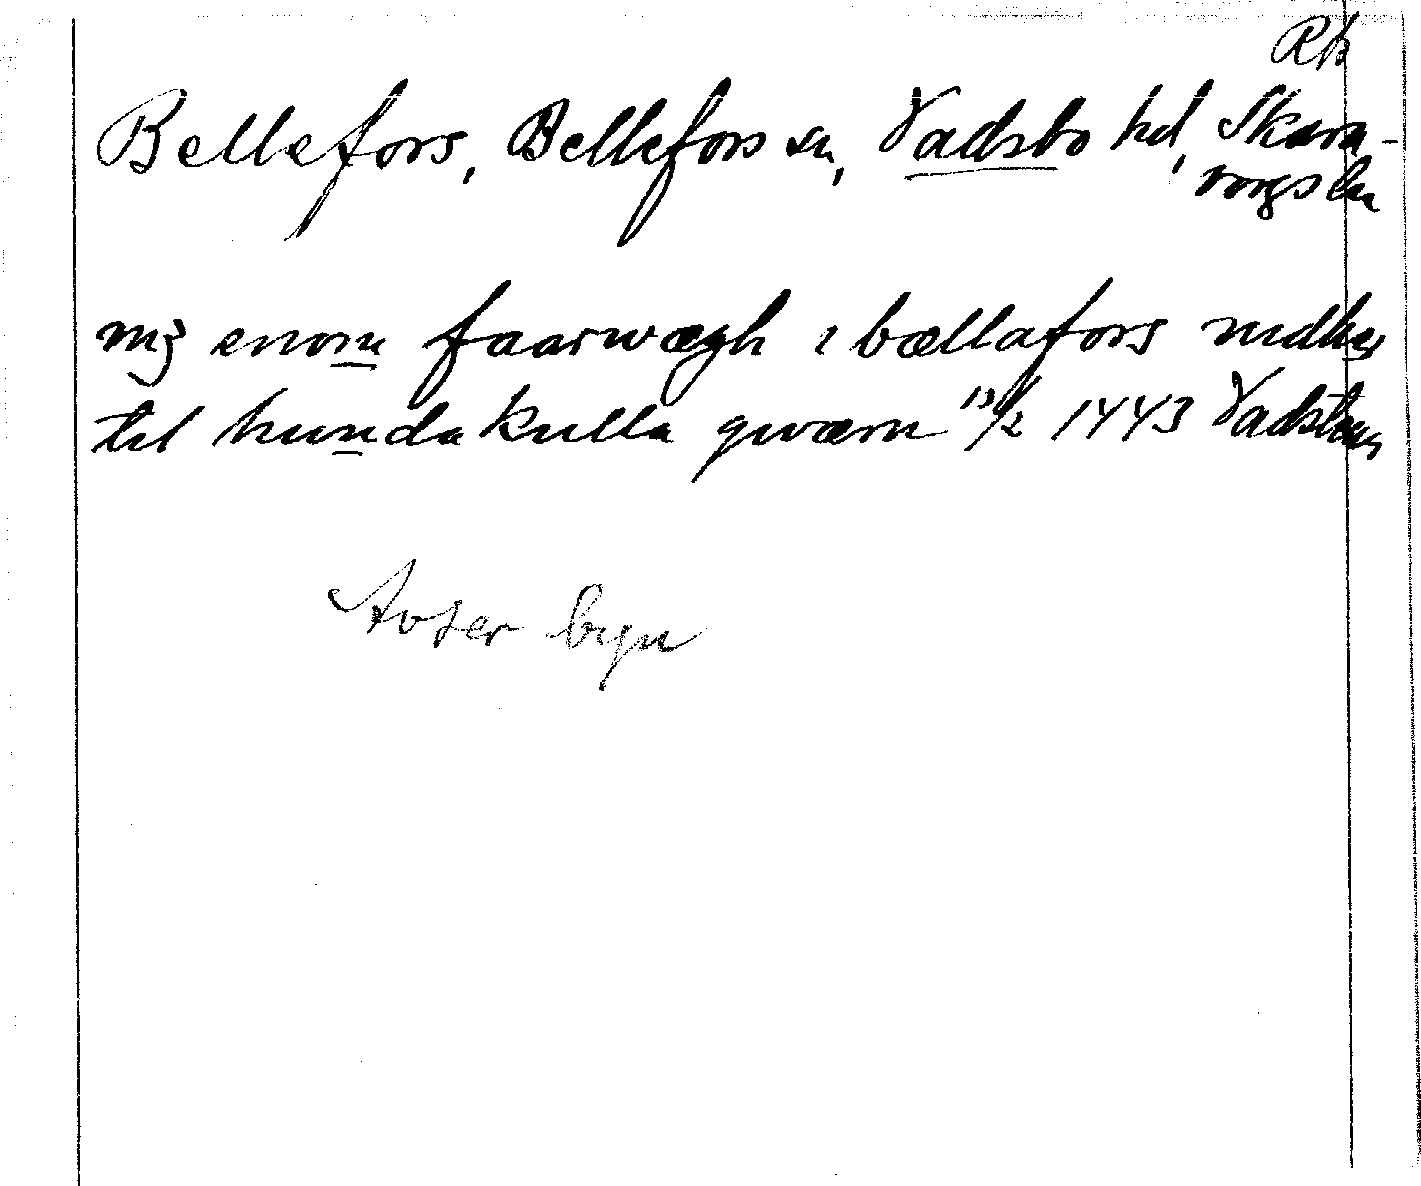 Rb
Bellefors, Bellefors sn, Vadsbo hd, Skara-
borgs län
mz enom faarwægh i bællafors nidher
til hundakulla qwærn 13/2 1443 Vadstena
Avser byn